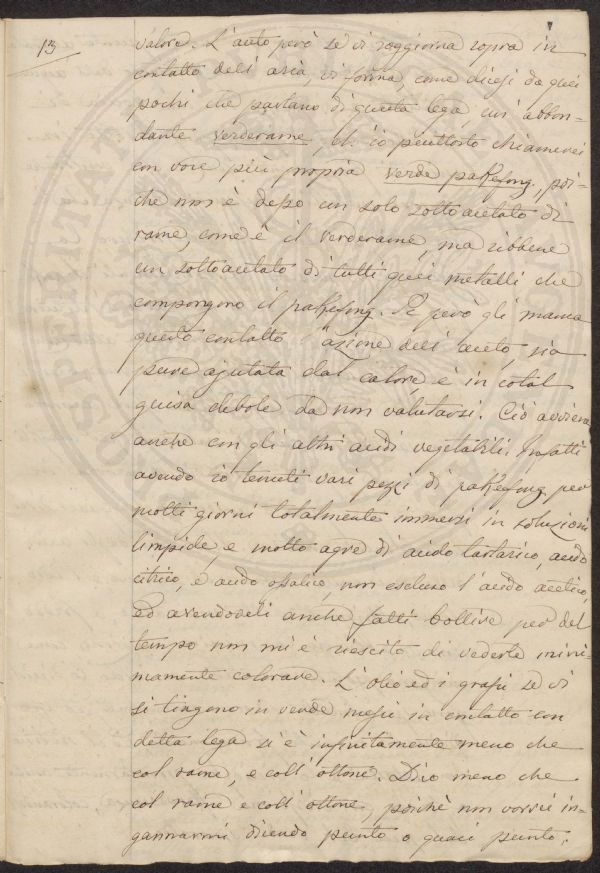 13
valore. L'aceto però se vi soggiorna sopra in
contatto dell'aria, vi forma, come dicesi da quei
pochi che parlano di questa lega, un' abbon-
dante verderame, ch'io piuttosto chiamerei
con voce più propria verde pakfong, poi-
chè non è desso un solo sottoacetato di
rame, come è il verderame, ma sibbene
un sottoacetato di tutti quei metalli che
compongono il pakfong. Se però gli manca
questo contatto l'azione dell'aceto, sia
pure ajutata dal calore, è in cotal
guisa debole da non valutarsi. Ciò avviene
anche con gli altri acidi vegetabili. Infatti
avendo io tenuti vari pezzi di pakfong per
molti giorni totalmente immersi in soluzioni
limpide, e molto agre di acido tartarico, acido
citrico, e acido ossalico, non escluso l'acido acetico,
ed avendoveli anche fatti bollire per del
tempo non mi è riescito di vederle mini-
mamente colorare. L'olio ed i grassi se vi
si tingono in verde messi in contatto con
detta lega si è infinitamente meno che
col rame, e coll'ottone. Dico meno che
col rame e coll'ottone, poichè non vorrei in-
gannarmi dicendo punto o quasi punto.